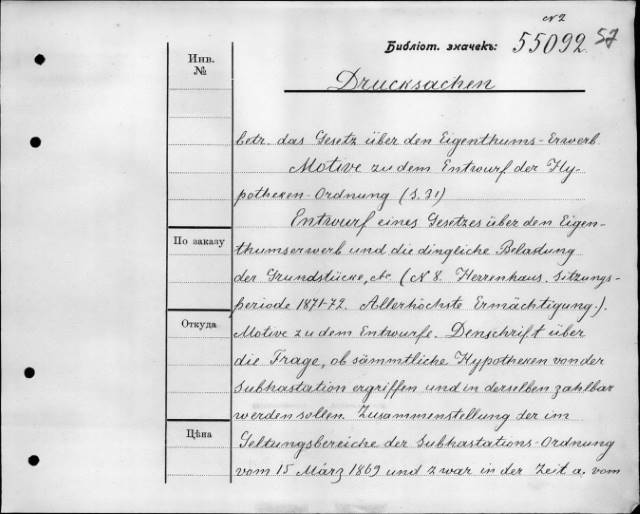 N 2
Библіот. значекъ: 55092 57
Инв.
№
Drucksachen
betr. das Gesetz über den Eigenthums-Erwerb
Motive zu dem Entwurf der Hy-
potheken-Ordnung (S. 31)
Entwurf eines Gesetzes über den Eigen-
thumserwerb und die dingliche Belastung
По заказу
der Grundstücke, etc. (N 8. Herrenhaus. Sitzungs-
periode 1871-72. Allerhöchste Ermächtigung.).
Откуда
Motive zu dem Entwurfe. Denschrift über
die Frage, ob sämmtliche Hypotheken von der
Subhastation ergriffen und in derselben zahlbar
werden sollen. Zusammenstellung der im
Цѣна
Geltungsbereiche der Subhastations-Ordnung
vom 15 März 1869 und zwar in der Zeit a. vom